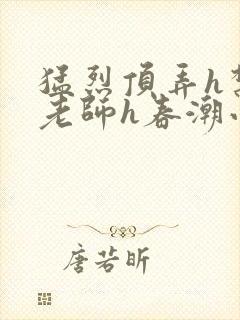 猛烈頂弄h
老師h春潮
唐若昕